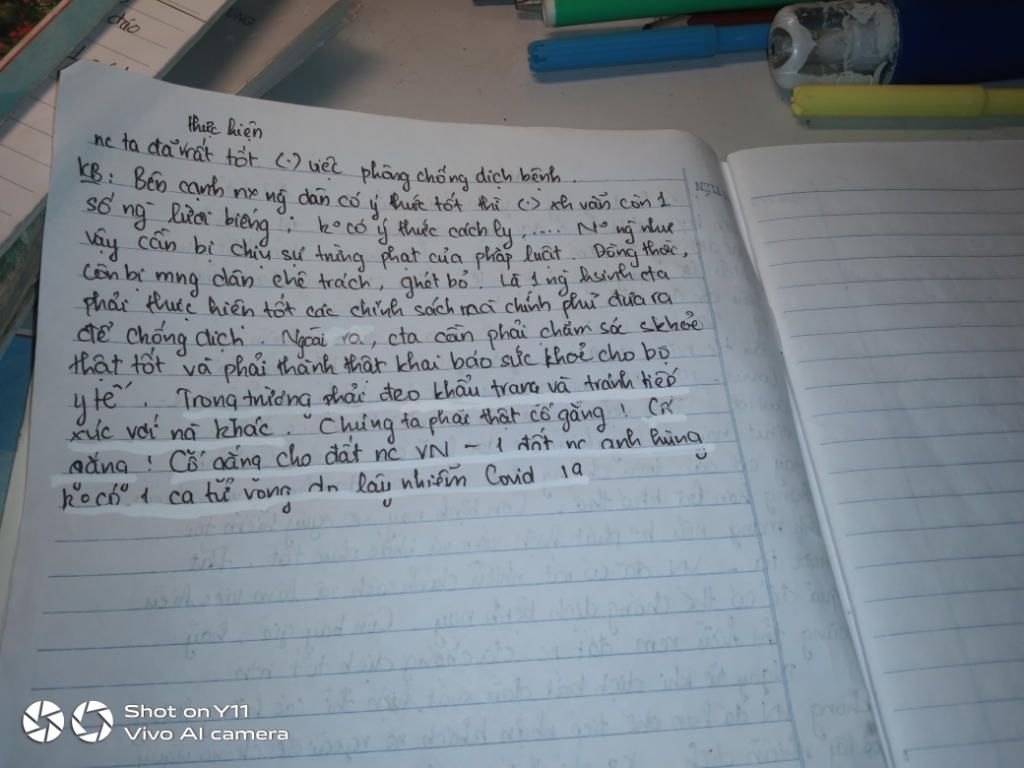 đáo
thực hiện
nc ta đã rất tốt (.) việc phòng chống dịch bệnh.
KB: Bên cạnh nx ng dân có ý thức tốt thì (.) xh vẫn còn 1
số ng lười biếng; ko có ý thức cách ly, .... No ng như
vậy cần bị chịu sự trừng phạt của pháp luật. Đồng thời,
còn bị mng dân chê trách, ghét bỏ. Là 1 ng hsinh cta
phải thực hiện tốt các chính sách mà chính phủ đưa ra
để chống dịch. Ngoài ra, cta cần phải chăm sóc skhoẻ
thật tốt và phải thành thật khai báo sức khoẻ cho bộ
y tế. Trong trường phải đeo khẩu trang và tránh tiếp
xúc với ng khác. Chúng ta phải thật cố gắng! Cố
gắng! Cố gắng cho đất nc VN - 1 đất nc anh hùng
ko có 1 ca tử vong do lây nhiễm Covid 19
Shot on Y11
Vivo AI camera